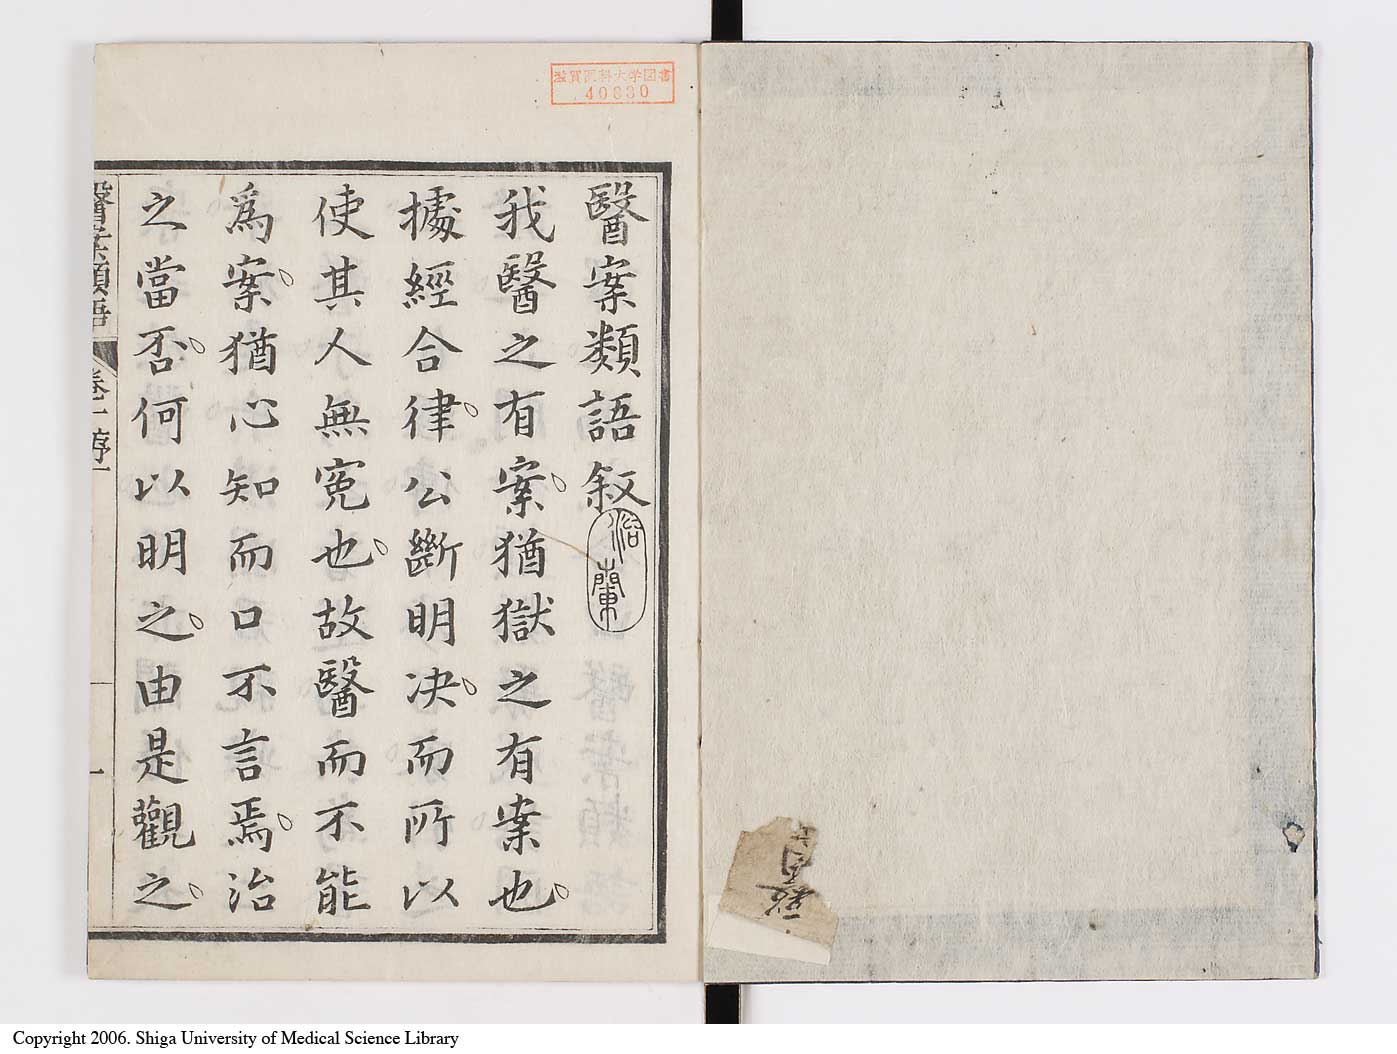 滋賀医科大学図書
40830
醫案類語叙
洽蘭
我醫之有案猶獄之有案也
據經合律公斷明決而所以
使其人無寃也故醫而不能
爲案猶心知而口不言焉治
之當否何以明之由是觀之
醫案類語 卷一 序 一
Copyright 2006. Shiga University of Medical Science Library